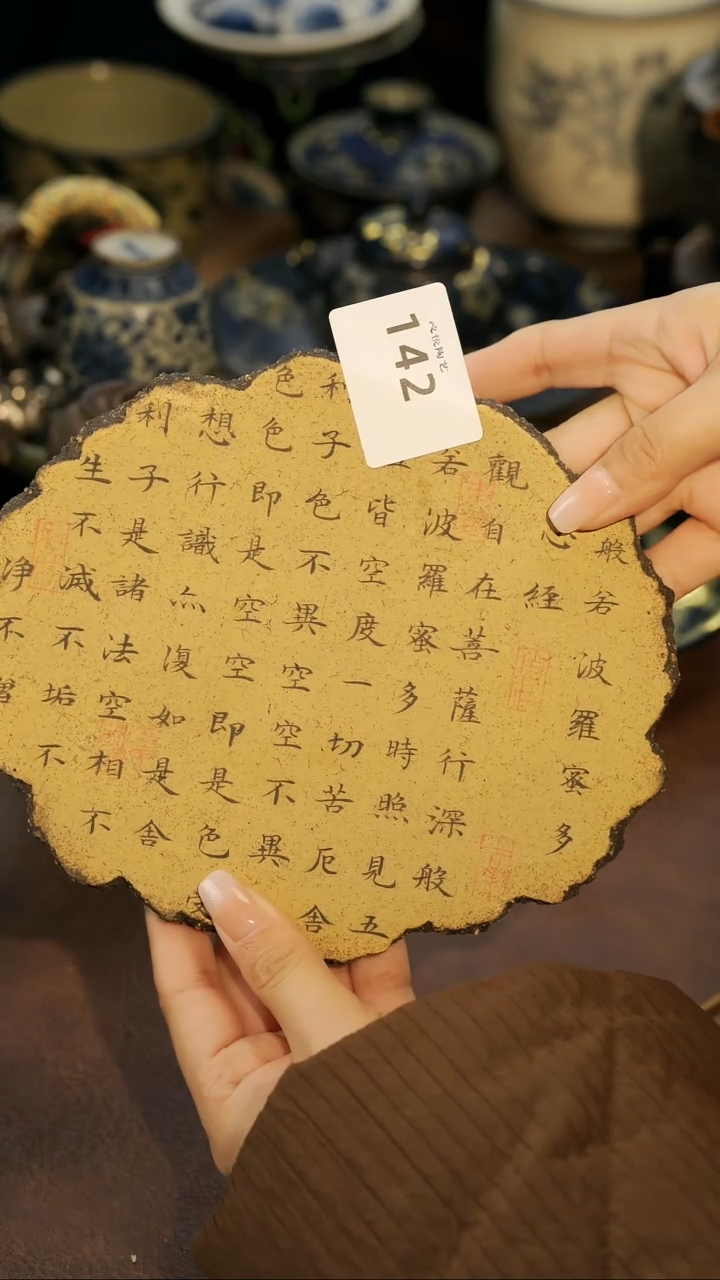 般若波羅蜜多
心經
觀自在菩薩行深般
若波羅蜜多時照見五
皆空度一切苦厄舍
利子色不異空空不異
色色即是空空即是色
想行識亦復如是舍
利子是諸法空相不
生不滅不垢不
净不
142